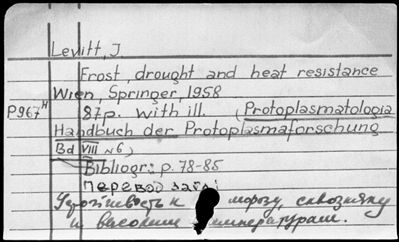 Levitt, J
Frost, drought and heat resistance
Wien, Springer, 1958
P967н 87p. with ill. (Protoplasmatologia
Handbuch der Protoplasmaforschung
Bd VIII №6)
Bibliogr: p. 78-85
Перевод загл:
Устойчивость к морозу, сквозняку
и высоким температурам.